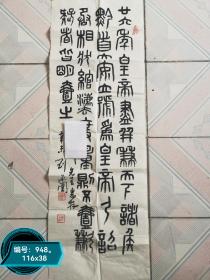 廿六年皇帝盡并兼天下諸侯
黔首大安立號為皇帝乃詔
丞相狀綰灋度量則不壹歉
疑者皆明壹之
编号:948。
116x38